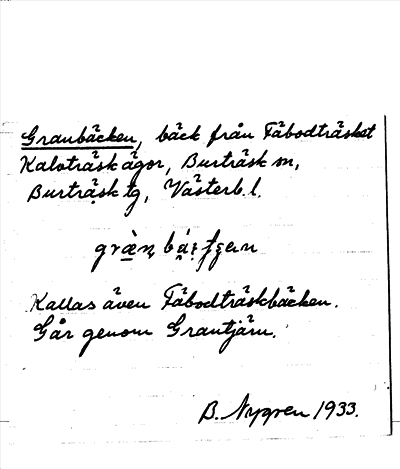 Granbäcken, bäck från Fäbodträsket
Kaloträsk ägor, Burträsk sn,
Burträsk tg, Västerb. l.
Kallas även Fäbodträskbäcken.
Går genom Grantjärn.
B. Nygren 1933.